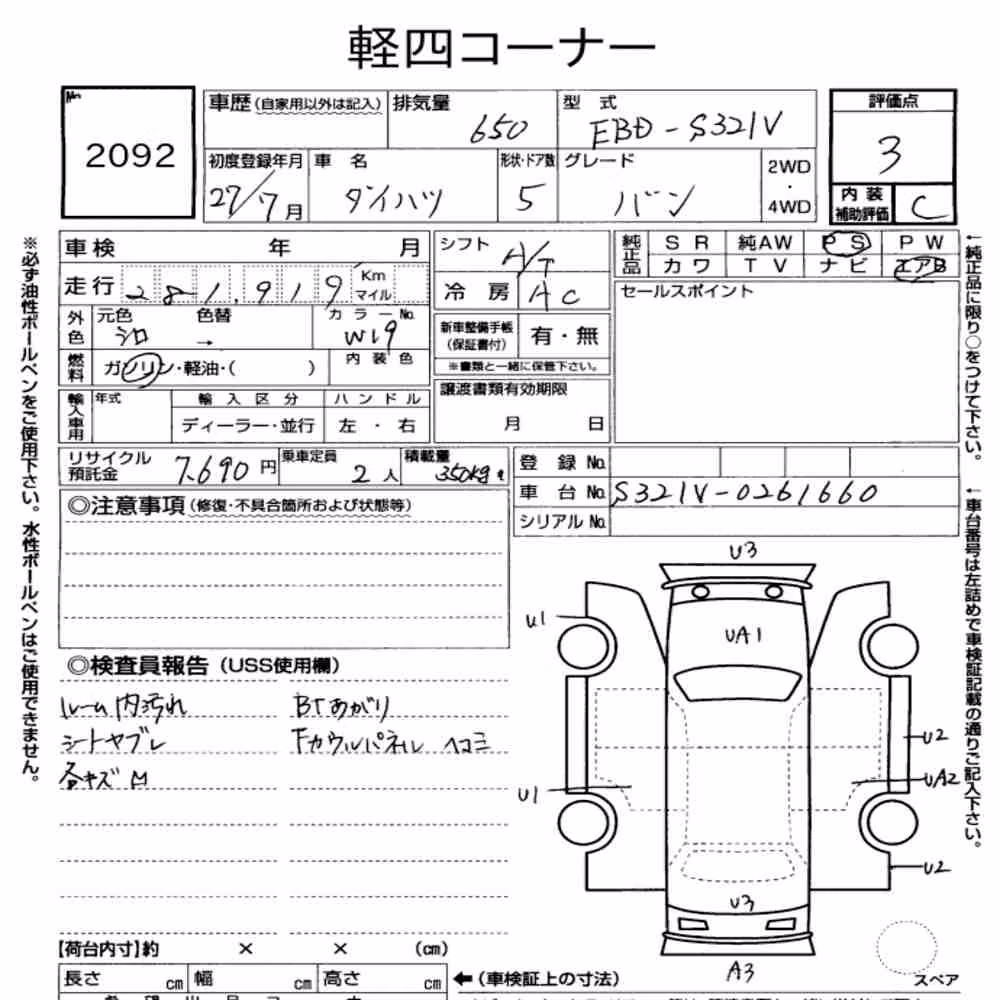 軽四コーナー
No.
2092
車歴(自家用以外は記入)
排気量
650
型式
EBD-S321V
評価点
3
初度登録年月
27/7月
車名
ダイハツ
形状・ドア数
5
グレード
バン
2WD
・
4WD
内装
補助評価
C
車検 年 月
シフト
A/T
純正品
SR 純AW PS PW
カワ TV ナビ エアB
走行 281,919 Km
マイル
冷房 AC
セールスポイント
外色
元色 色替
シロ →
カラーNo.
W19
新車整備手帳
(保証書付)
有・無
※書類と一緒に保管下さい。
燃料
ガソリン・軽油・( )
内装色
譲渡書類有効期限
月 日
輸入車用
年式
輸入区分
ハンドル
ディーラー・並行
左・右
リサイクル
預託金
7,690円
乗車定員
2人
積載量
350kg
登録No.
車台No. S321V-0261660
シリアルNo.
※必ず油性ボールペンをご使用下さい。水性ボールペンはご使用できません。
←純正品に限り○をつけて下さい。
←車台番号は左詰めで車検証記載の通りご記入下さい。
◎注意事項(修復・不具合箇所および状態等)
◎検査員報告(USS使用欄)
ルーム内汚れ
BTあがり
シートヤブレ
Fカウルパネル ヘコミ
各キズ凹
U3
U1
UA1
U2
U1
UA2
U2
U3
A3
スペア
【荷台内寸】約 × × (cm)
長さ cm 幅 cm 高さ cm
←(車検証上の寸法)